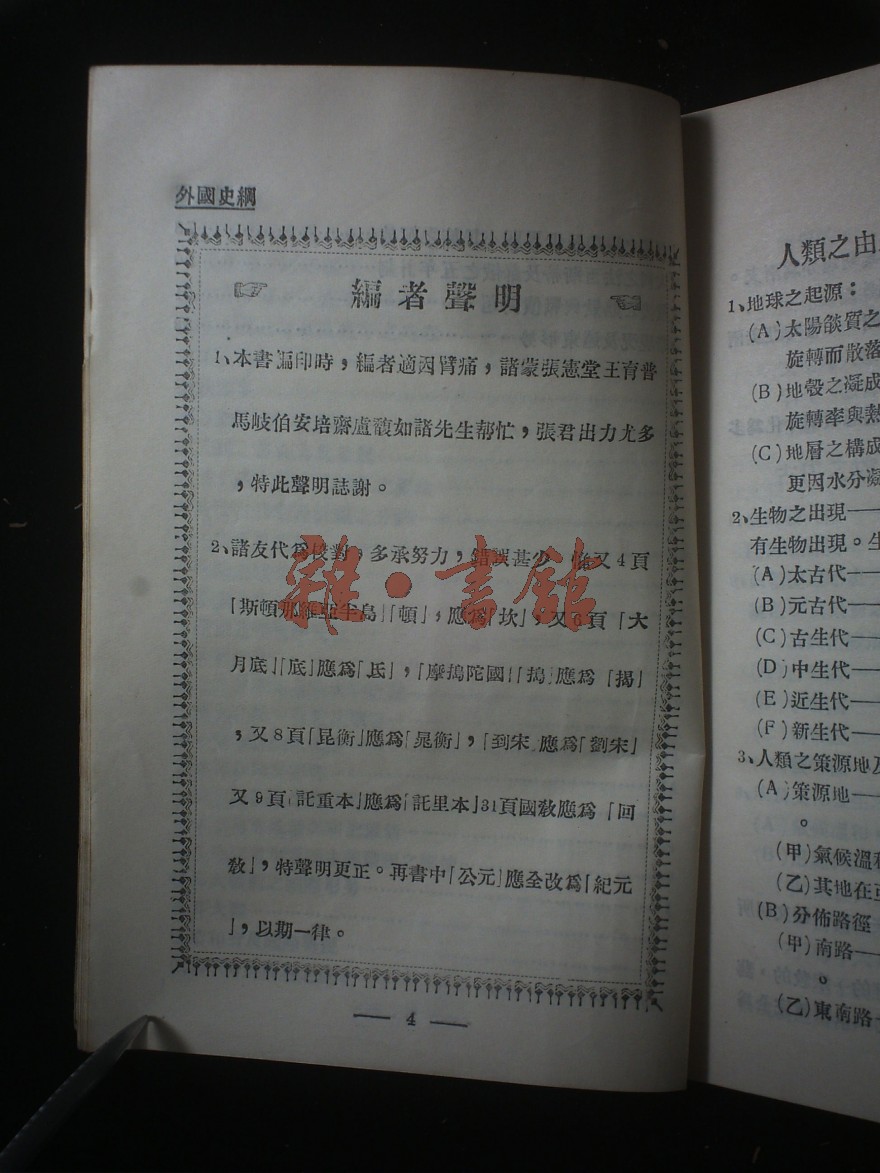 外國史綱
編者聲明
1、本書漏印時，編者適因臂痛，諸蒙張憲堂王育普
馬岐伯安培齋盧馥如諸先生帮忙，張君出力尤多
，特此聲明誌謝。
2、諸友代為校對，多承努力，錯誤甚少，除又4頁
「斯頓那維亞半島」「頓」，應爲「坎」，又6頁「大
月底」「底」應爲「氐」，「摩搗陀國」「搗」應爲「揭」
，又8頁「昆衡」應爲「晁衡」，「到宋」應爲「劉宋」
又9頁「託重本」應爲「託里本」31頁國敎應爲「回
敎」，特聲明更正。再書中「公元」應全改爲「紀元
」，以期一律。
— 4 —
雜·書館
人類之由
1、地球之起源：
(A)太陽燄質之
旋轉而散落
(B)地殼之凝成
旋轉率與熱
(C)地層之構成
更因水分凝
2、生物之出現——
有生物出現。生
(A)太古代——
(B)元古代——
(C)古生代——
(D)中生代——
(E)近生代——
(F)新生代——
3、人類之策源地及
(A)策源地——
。
(甲)氣候溫和
(乙)其地在亞
(B)分佈路徑—
(甲)南路——
。
(乙)東南路—